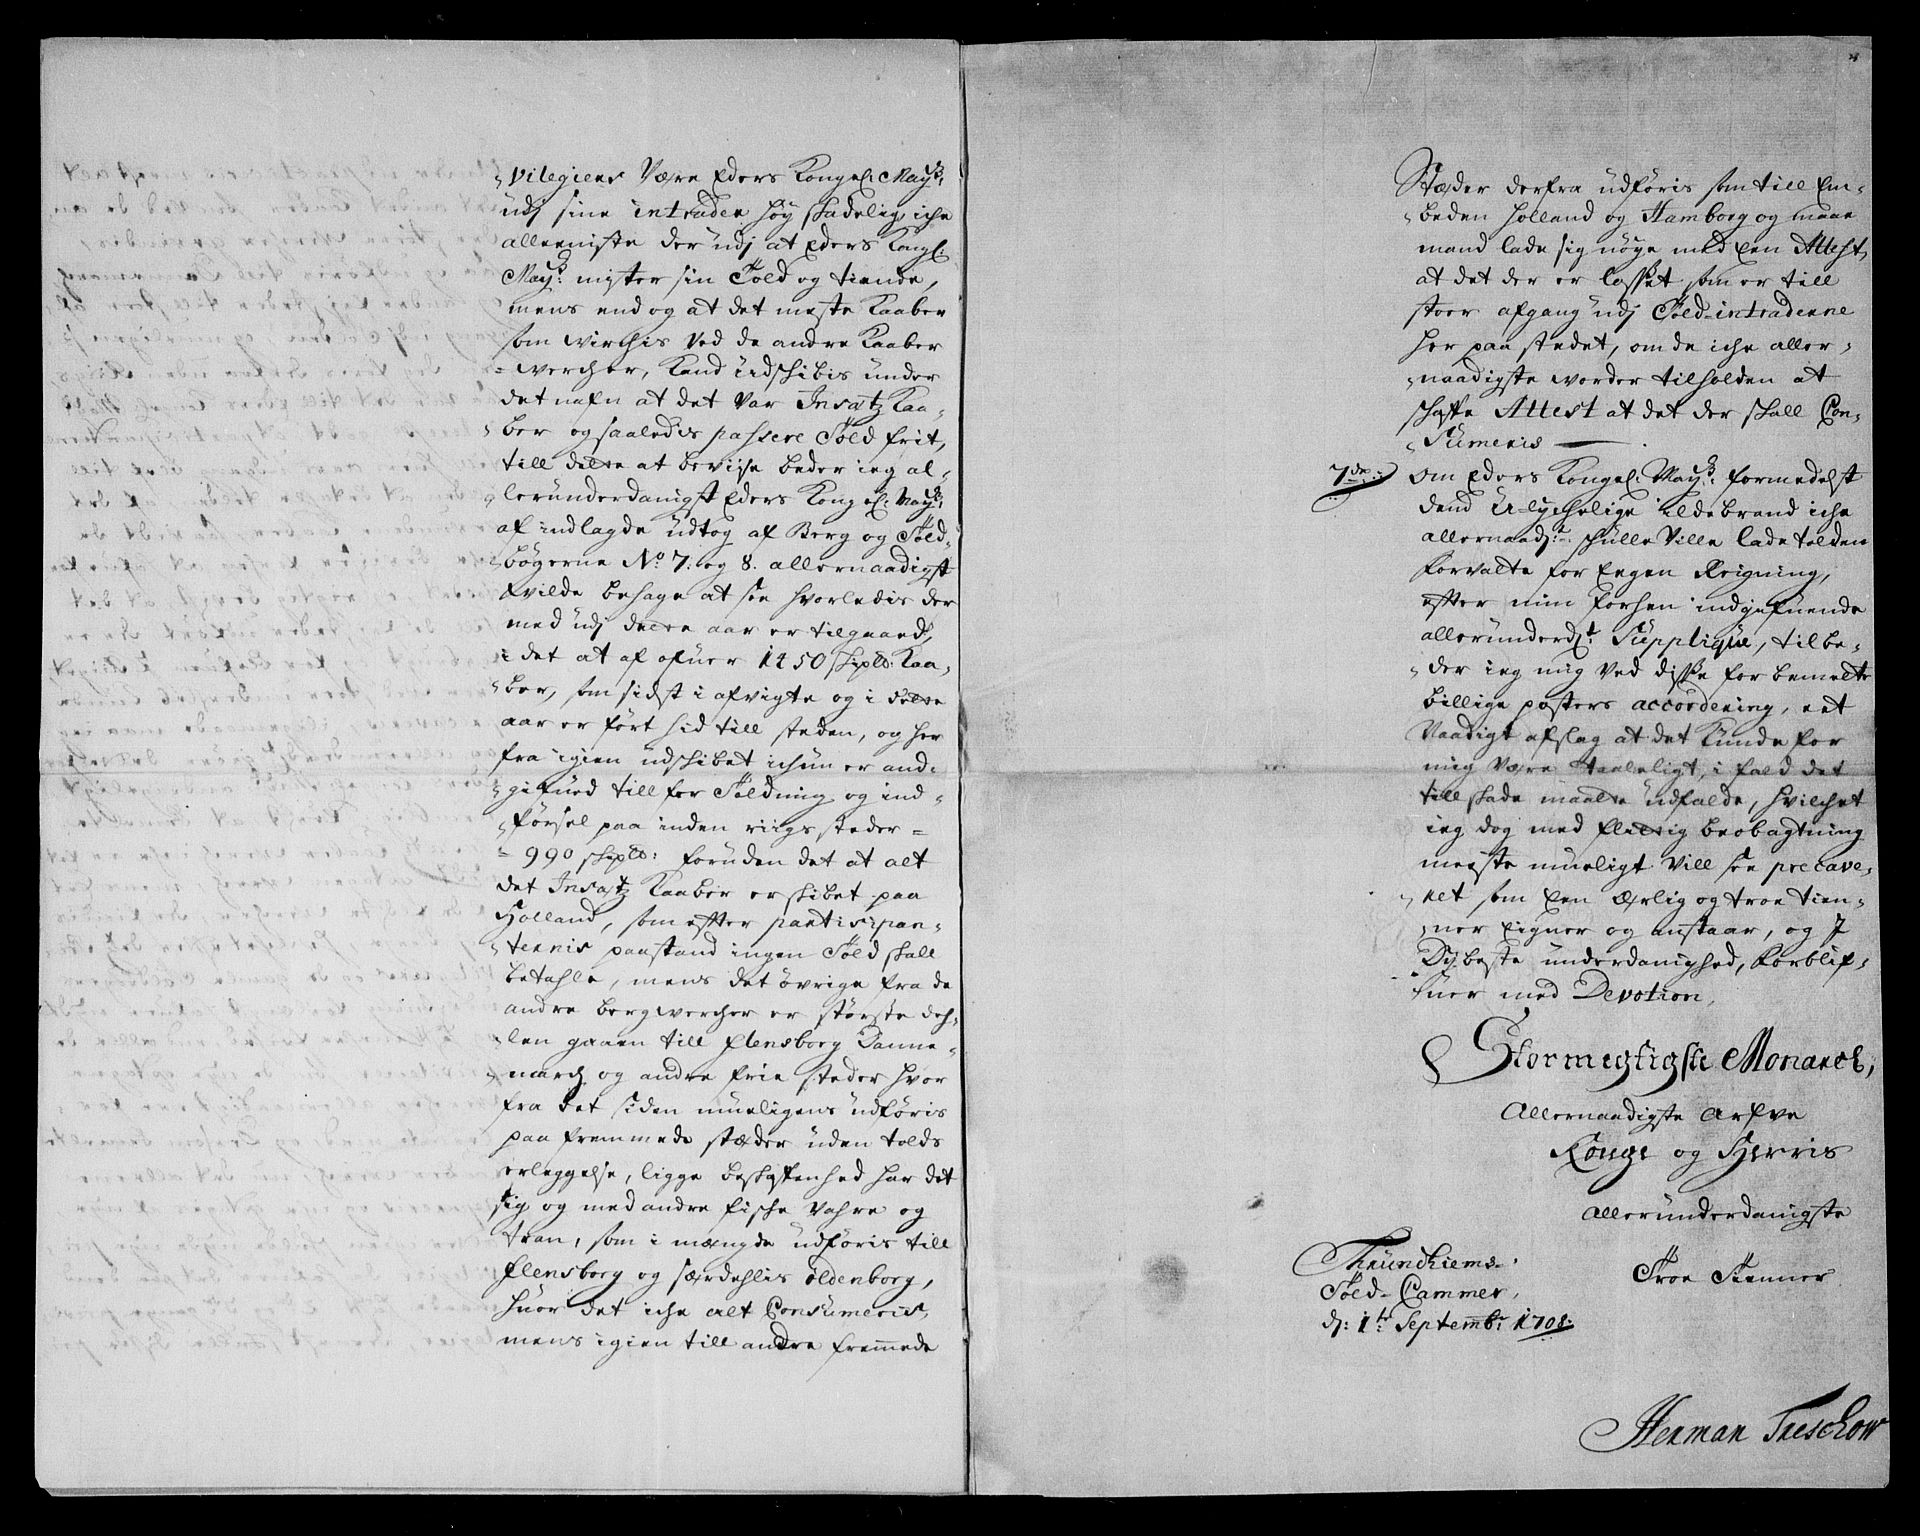 -vilegier Være Eders Kongel: May:ts
udj sine intrader höy skadelig, iche
alleeniste der udj at Eders Kongl:
May:ts mister sin Told og tiende,
mens end og at det meste Kaaber
som wirchis ved de andre Kaaber
-wercher, Kand udskibis under
det nafn at det var Insatz Kaa-
-ber og saaledis passere Told frit,
till dette at beviise beder ieg al-
-lerunderdanigst Eders Kongel: May:ts
af indlagde udtog af Berg og Told-
-bøgerne No 7. og 8. allernaadigst
vilde behage at see hvorledis der
med udj dette aar er tilgaaed,
i det at af ofuer 1450 skpld: Kaa-
-ber, som sidst i afvigte og i dette
aar er fört hid till steden, og her
fra igien udskibet ichun er and-
-gifued till for Toldning og ind-
-försel paa inden riigs steder =
= 990 skpld: foruden det at alt
det Insatz Kaaber er skibet paa
Holland, som efter participan-
-ternis paastand ingen Told skall
betahle, mens det övrige fra de
andre bergwercher er störste deh-
-len gaaen till Flensborg Danne-
-march og andre frie steder hvor
fra det siden mueligens udföris
paa fremmede stæder uden tolds
erleggelse, ligge beskaffenhed har det
sig og med andre fische vahre og
tran, som i mængde udföris till
Flensborg og særdehlis Oldenborg,
huor det iche alt Consumeris,
mens igien till andre fremmede
Stæder derfra udföris som till Em-
-beden Holland og Hamborg og maae
mand lade sig nöye med een Attest,
at det der er losset som er till
stoer afgang udj Told-intraderne
her paa stedet, om de iche aller-
-naadigste worder tilholden at
skaffe Attest at det der skall Con-
-sumeris
7de: Om Eders Kongel: May:ts formedelst
dend U-lychelige ildebrand iche
allernaad:t skulle Ville lade tolden
forvalte for Eegen Reigning,
efter min forhen indgifuende
allerunderd:t Supplique, tilbe-
-der ieg mig ved disse forbemelte
billige posters accordering, eet
Naadigt afslag at det kunde for
mig være taaleligt, i fald det
till skade maatte udfalde, hvilchet
ieg dog med flittig beobagtning
meeste mueligt Vill see precave-
-ret som Een ærlig og troe tien-
-ner Eigner og anstaar, og J
Dybeste underdanighed, forblif-
-uer med Devotion,
Stormegtigste Monarch,
Allernaadigste Arfve
Konge og Herris
Allerunderdanigste
Troe Tienner
Thrundhiems
Told-Cammer,
d: 1te Septembr: 1708:
Herman Treschow